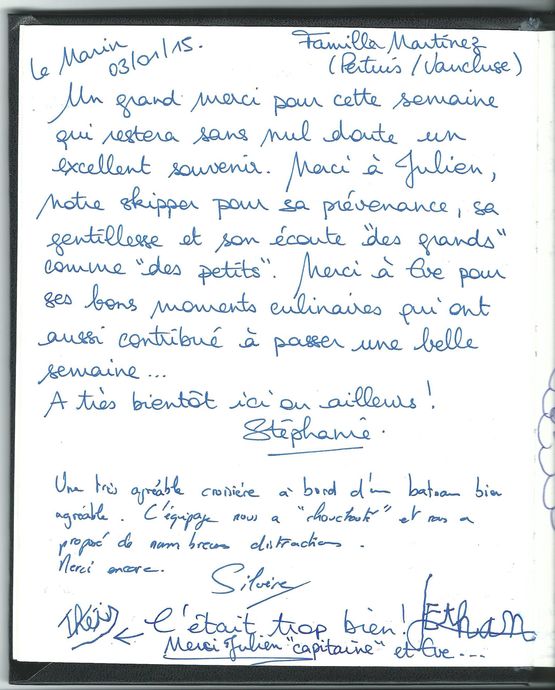 Le Marin
03/01/15.
Famille Martinez
(Pertuis/Vaucluse)
Un grand merci pour cette semaine
qui restera sans nul doute un
excellent souvenir. Merci à Julien,
notre skipper pour sa prévenance, sa
gentillesse et son écoute "des grands"
comme "des petits". Merci à Eve pour
ses bons moments culinaires qui ont
aussi contribué à passer une belle
semaine...
A très bientôt ici ou ailleurs!
Stéphanie.
Une très agréable croisière à bord d'un bateau bien
agréable. L'équipage nous a "chouchouté" et nous a
proposé de nombreuses distractions.
Merci encore.
Silvère
C'était trop bien! Ethan
Merci Julien "capitaine" et Eve...